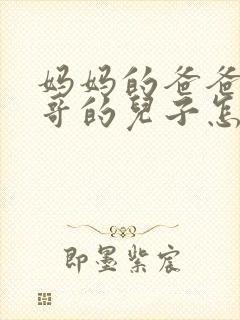 妈妈的爸爸
哥的兒子怎
即墨紫宸